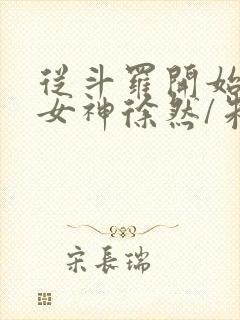 從斗羅開始
女神徐然/
宋長瑞